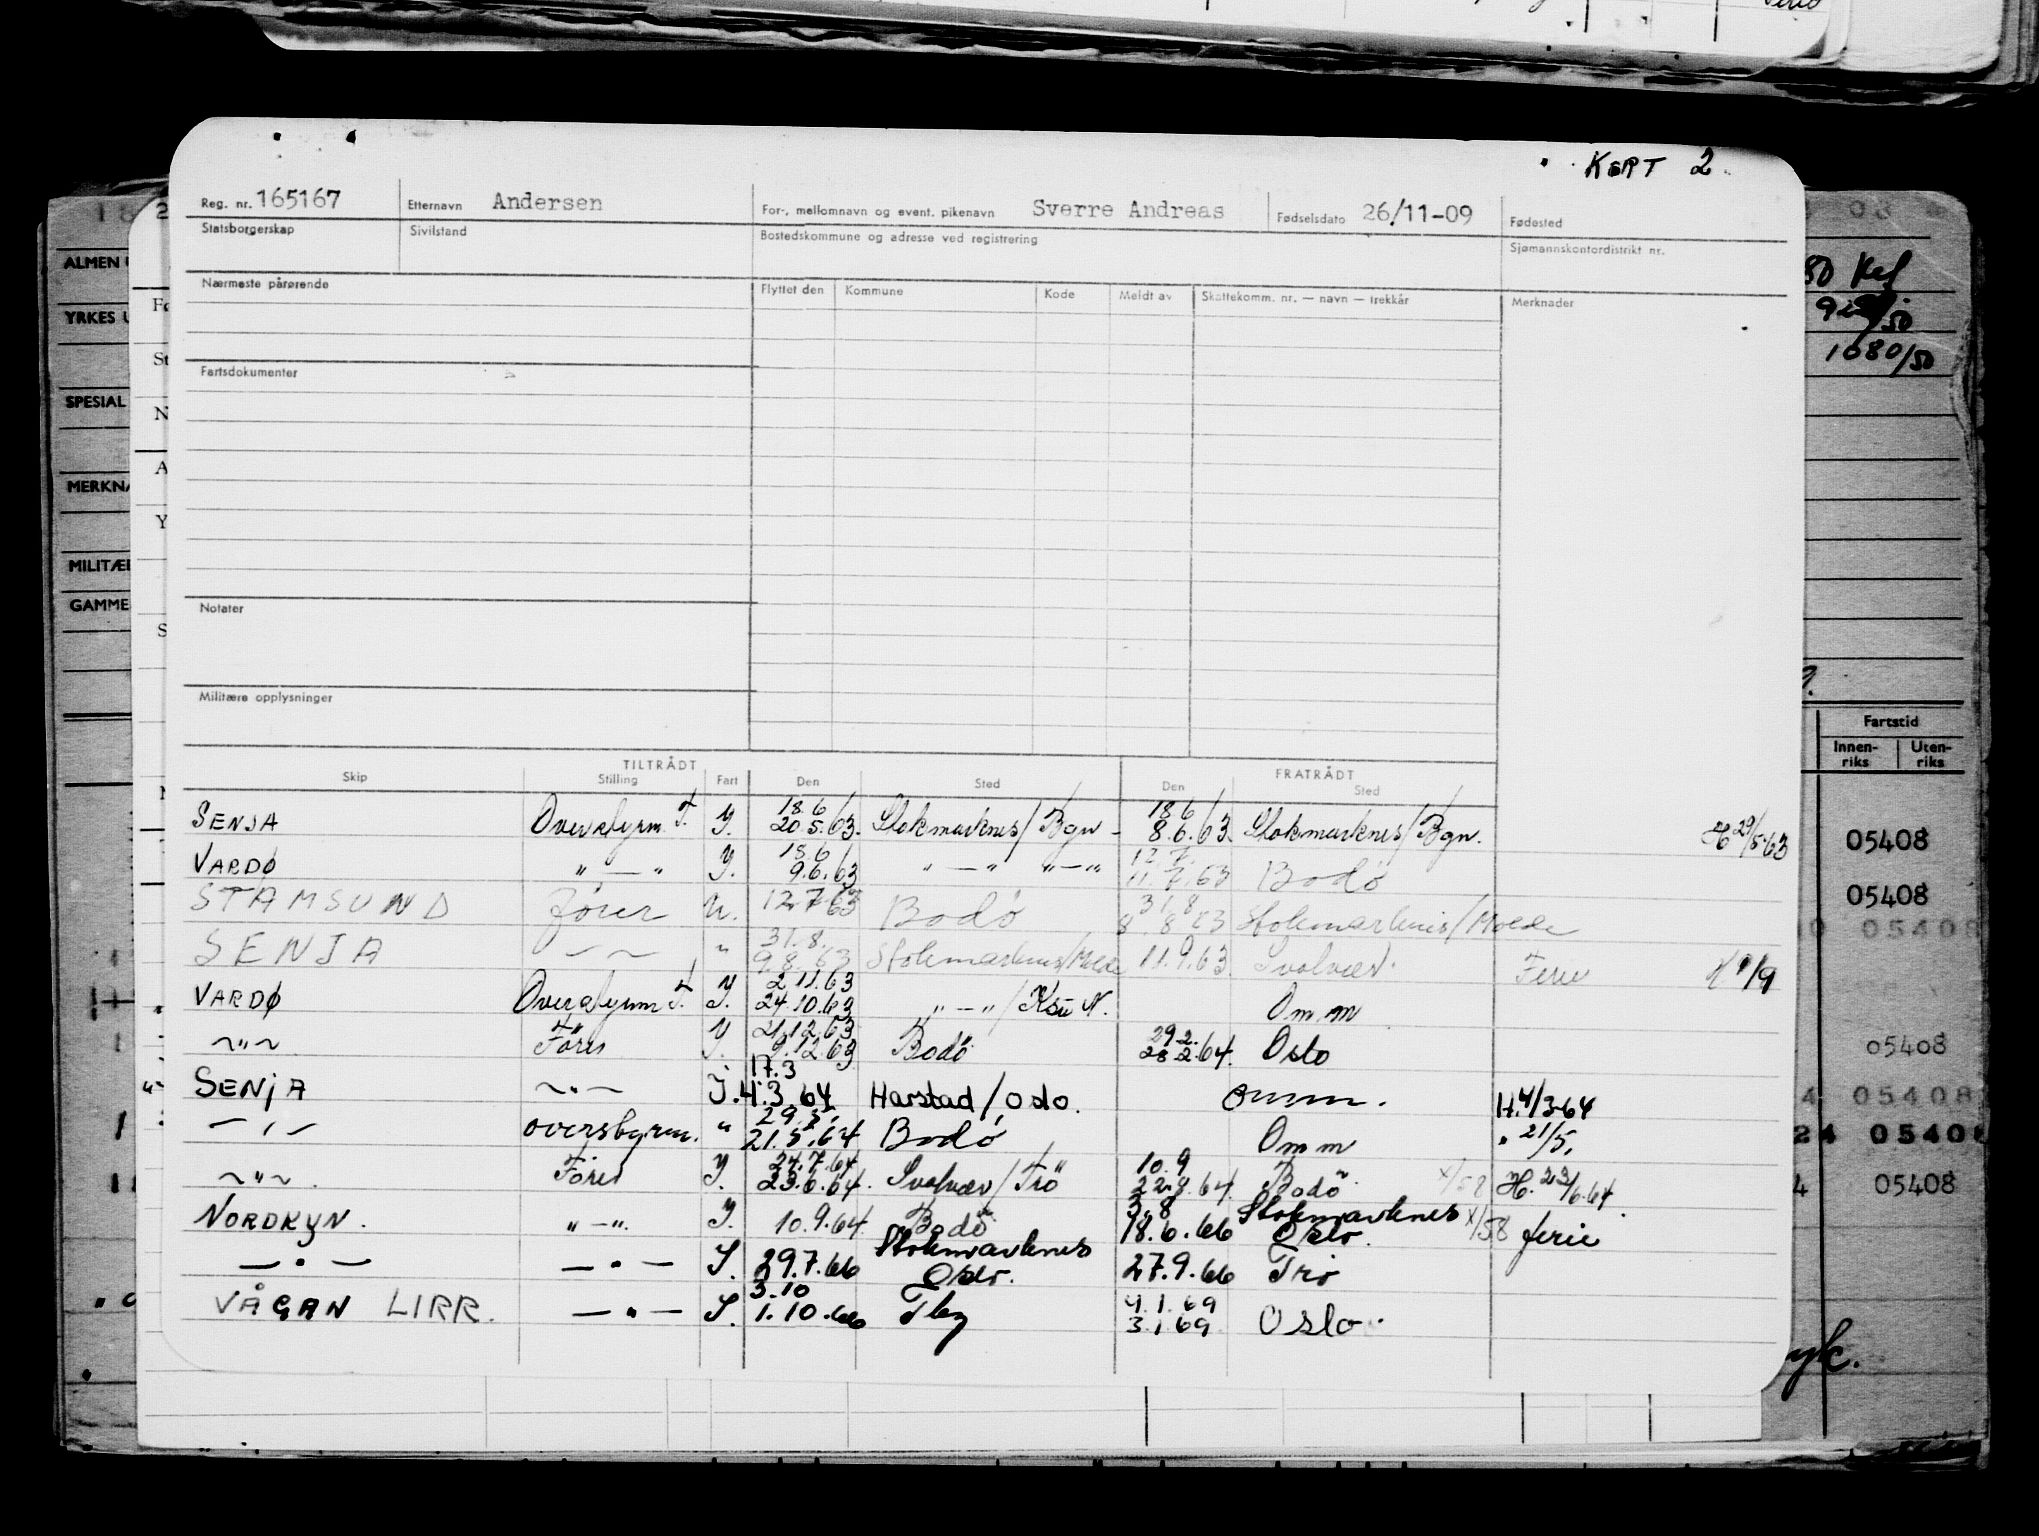 KORT 2.
Reg. nr. 165167 Etternavn Andersen For-, mellomnavn og event. pikenavn Sverre Andreas Fødselsdato 26/11-09 Fødested
Statsborgerskap Sivilstand Bostedskommune og adresse ved registrering Sjømannskontordistrikt nr.
Nærmeste pårørende Flyttet den Kommune Kode Meldt av Skattekomm. nr. — navn — trekkår Merknader
Fartsdokumenter
Notater
Militære opplysninger
TILTRÅDT FRATRÅDT
Skip Stilling Fart Den Sted Den Sted
18.6 18.6
SENJA Overstyrm. F. Y. 20.5.63. Stokmarknes/Bgn - 8.6.63. Stokmarknes/Bgn. H 29/5-63
18.6 12.7.
VARDØ " — " Y. 9.6.63 " — " " — " 11.7.63 Bodø
31.8
STAMSUND fører U. 12.7.63 Bodø 8.8.63 Stokmarknes/Molde
31.8.
SENJA — " 9.8.63 Stokmarknes/Molde 11.9.63. Svolvær. Ferie
2.11.63
VARDØ Overstyrm F. Y. 24.10.63 " — " / Ksu N. Omm
29.2.
~ " ~ Förer Y. 9.12.63 Bodö 28.2.64. Oslo
17.3
SENJA ~ " ~ Y. 4.3.64 Harstad/Oslo. omm. H. 4/3-64
— " — overstyrm. " 21.5.64 Bodø Omm " 21/5.
24.7.64 10.9
~ " ~ Förer Y. 23.6.64. Svolvær/Trö Bodö x/58 H. 23/6.64.
3.8 Stokmarknes
NORDKYN. " — ". Y. 10.9.64 Bodö 18.6.66 Oslo. x/58 ferie
Stokmarknes
— " — — " — Y. 29.7.66 Oslo. 27.9.66 Trö
3.10 4.1.69
VÅGAN LIRR. — " — Y. 1.10.66 Tbg 3.1.69 Oslo.
ALMEN
YRKES
SPESIAL
MERKNA
MILITÆ
GAMME
1080/50
Fartstid
Innen-riks Uten-riks
05408
05408
05408
05408
05408
05408
05408